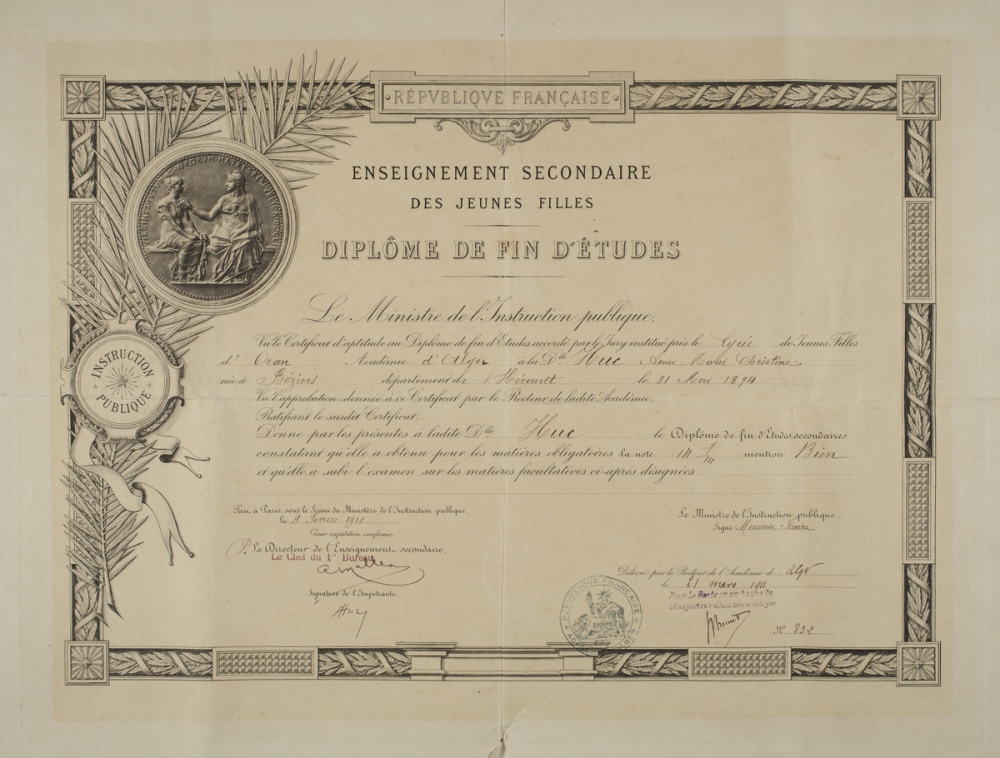 RÉPVBLIQVE FRANÇAISE
ENSEIGNEMENT SECONDAIRE
DES JEUNES FILLES
DIPLÔME DE FIN D'ÉTUDES
INSTRUCTION
PUBLIQUE
Le Ministre de l'Instruction publique,
Vu le Certificat d'aptitude au Diplôme de fin d'Etudes accordé par le Jury institué près le Lycée de Jeunes Filles
d' Oran Académie d'Alger à la Dlle Huc Anne Marie Christine
née à Béziers département de l'Hérault le 21 Mai 1894
Vu l'approbation donnée à ce Certificat par le Recteur de ladite Académie,
Ratifiant le susdit Certificat.
Donne par les présentes à ladite Dlle Huc le Diplôme de fin d'Etudes secondaires
constatant qu'elle a obtenu pour les matières obligatoires la note 14 mention Bien
et qu'elle a subi l'examen sur les matières facultatives ci-après désignées
Fait à Paris, sous le Sceau du Ministère de l'Instruction publique,
le Février 1911
Pour expédition conforme
P. Le Directeur de l'Enseignement secondaire,
Le Chef du 1er Bureau
Signature de l'Impétrante.
AHuc
Le Ministre de l'Instruction publique,
Signé Maurice Faure
Délivré par le Recteur de l'Académie d' Alger
le 21 mars 1911
Pour le Recteur
RÉPUBLIQUE FRANÇAISE
N° 832